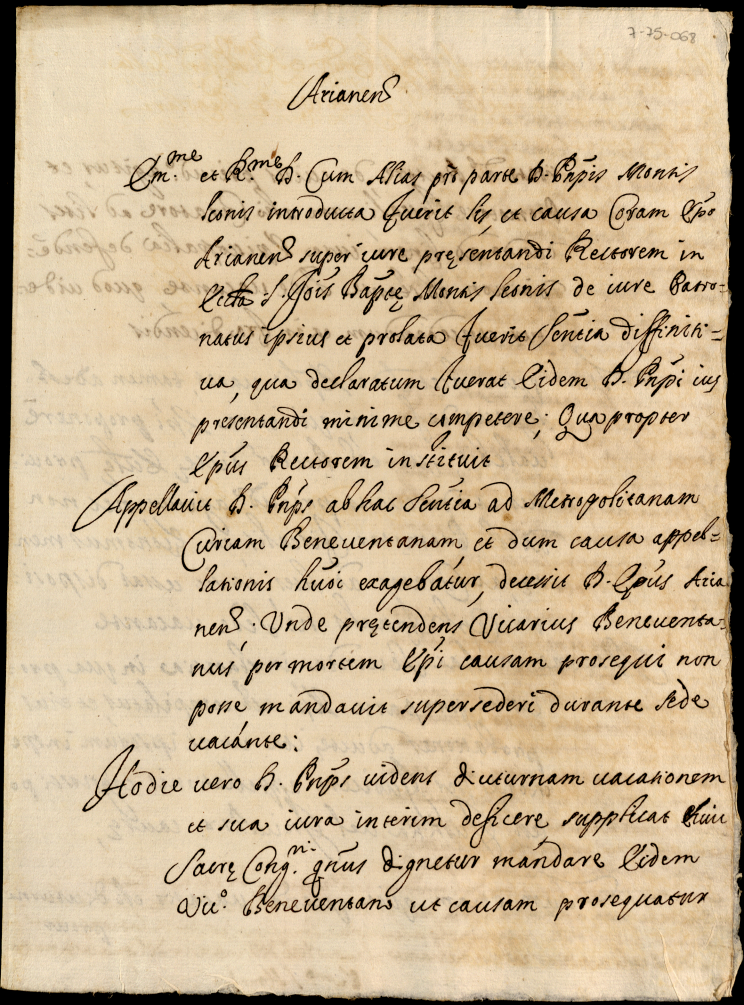 7-75-068
Arianen̄
Em.me et R.me D. Cum Alias pro parte D. Pñpis Montis
Leonis introducta fuerit lis et causa Coram Ep̄o
Arianen̄ super iure pręsentandi Rectorem in
S. Jõis Bap̄tę Montis Leonis de iure Patro=
natus ipsius et prolata fuerit Sentia diffiniti=
ua, qua declaratum fuerat Eidem D. Pñpi ius
presentandi minime competere; Qua propter
Ep̄us Rectorem instituit
Appellauit D. Pñps ab hac Sentia ad Metropolitanam
Curiam Beneuentanam, et dum causa appel=
lationis huōi exagebatur, decessit D. Ep̄us Aria
nen̄. Unde prętendens Vicarius Beneuenta=
nus per mortem Ep̄i causam prosequi non
posse mandauit supersederi durante sede
uacante:
Hodie uero D. Pñps uidens diuturnam uacationem
et sua iura interim deficere supplicat huic
Sacrę Cong.ni q̄nus dignetur mandare Eidem
Vic.o Beneuentano ut causam prosequatur